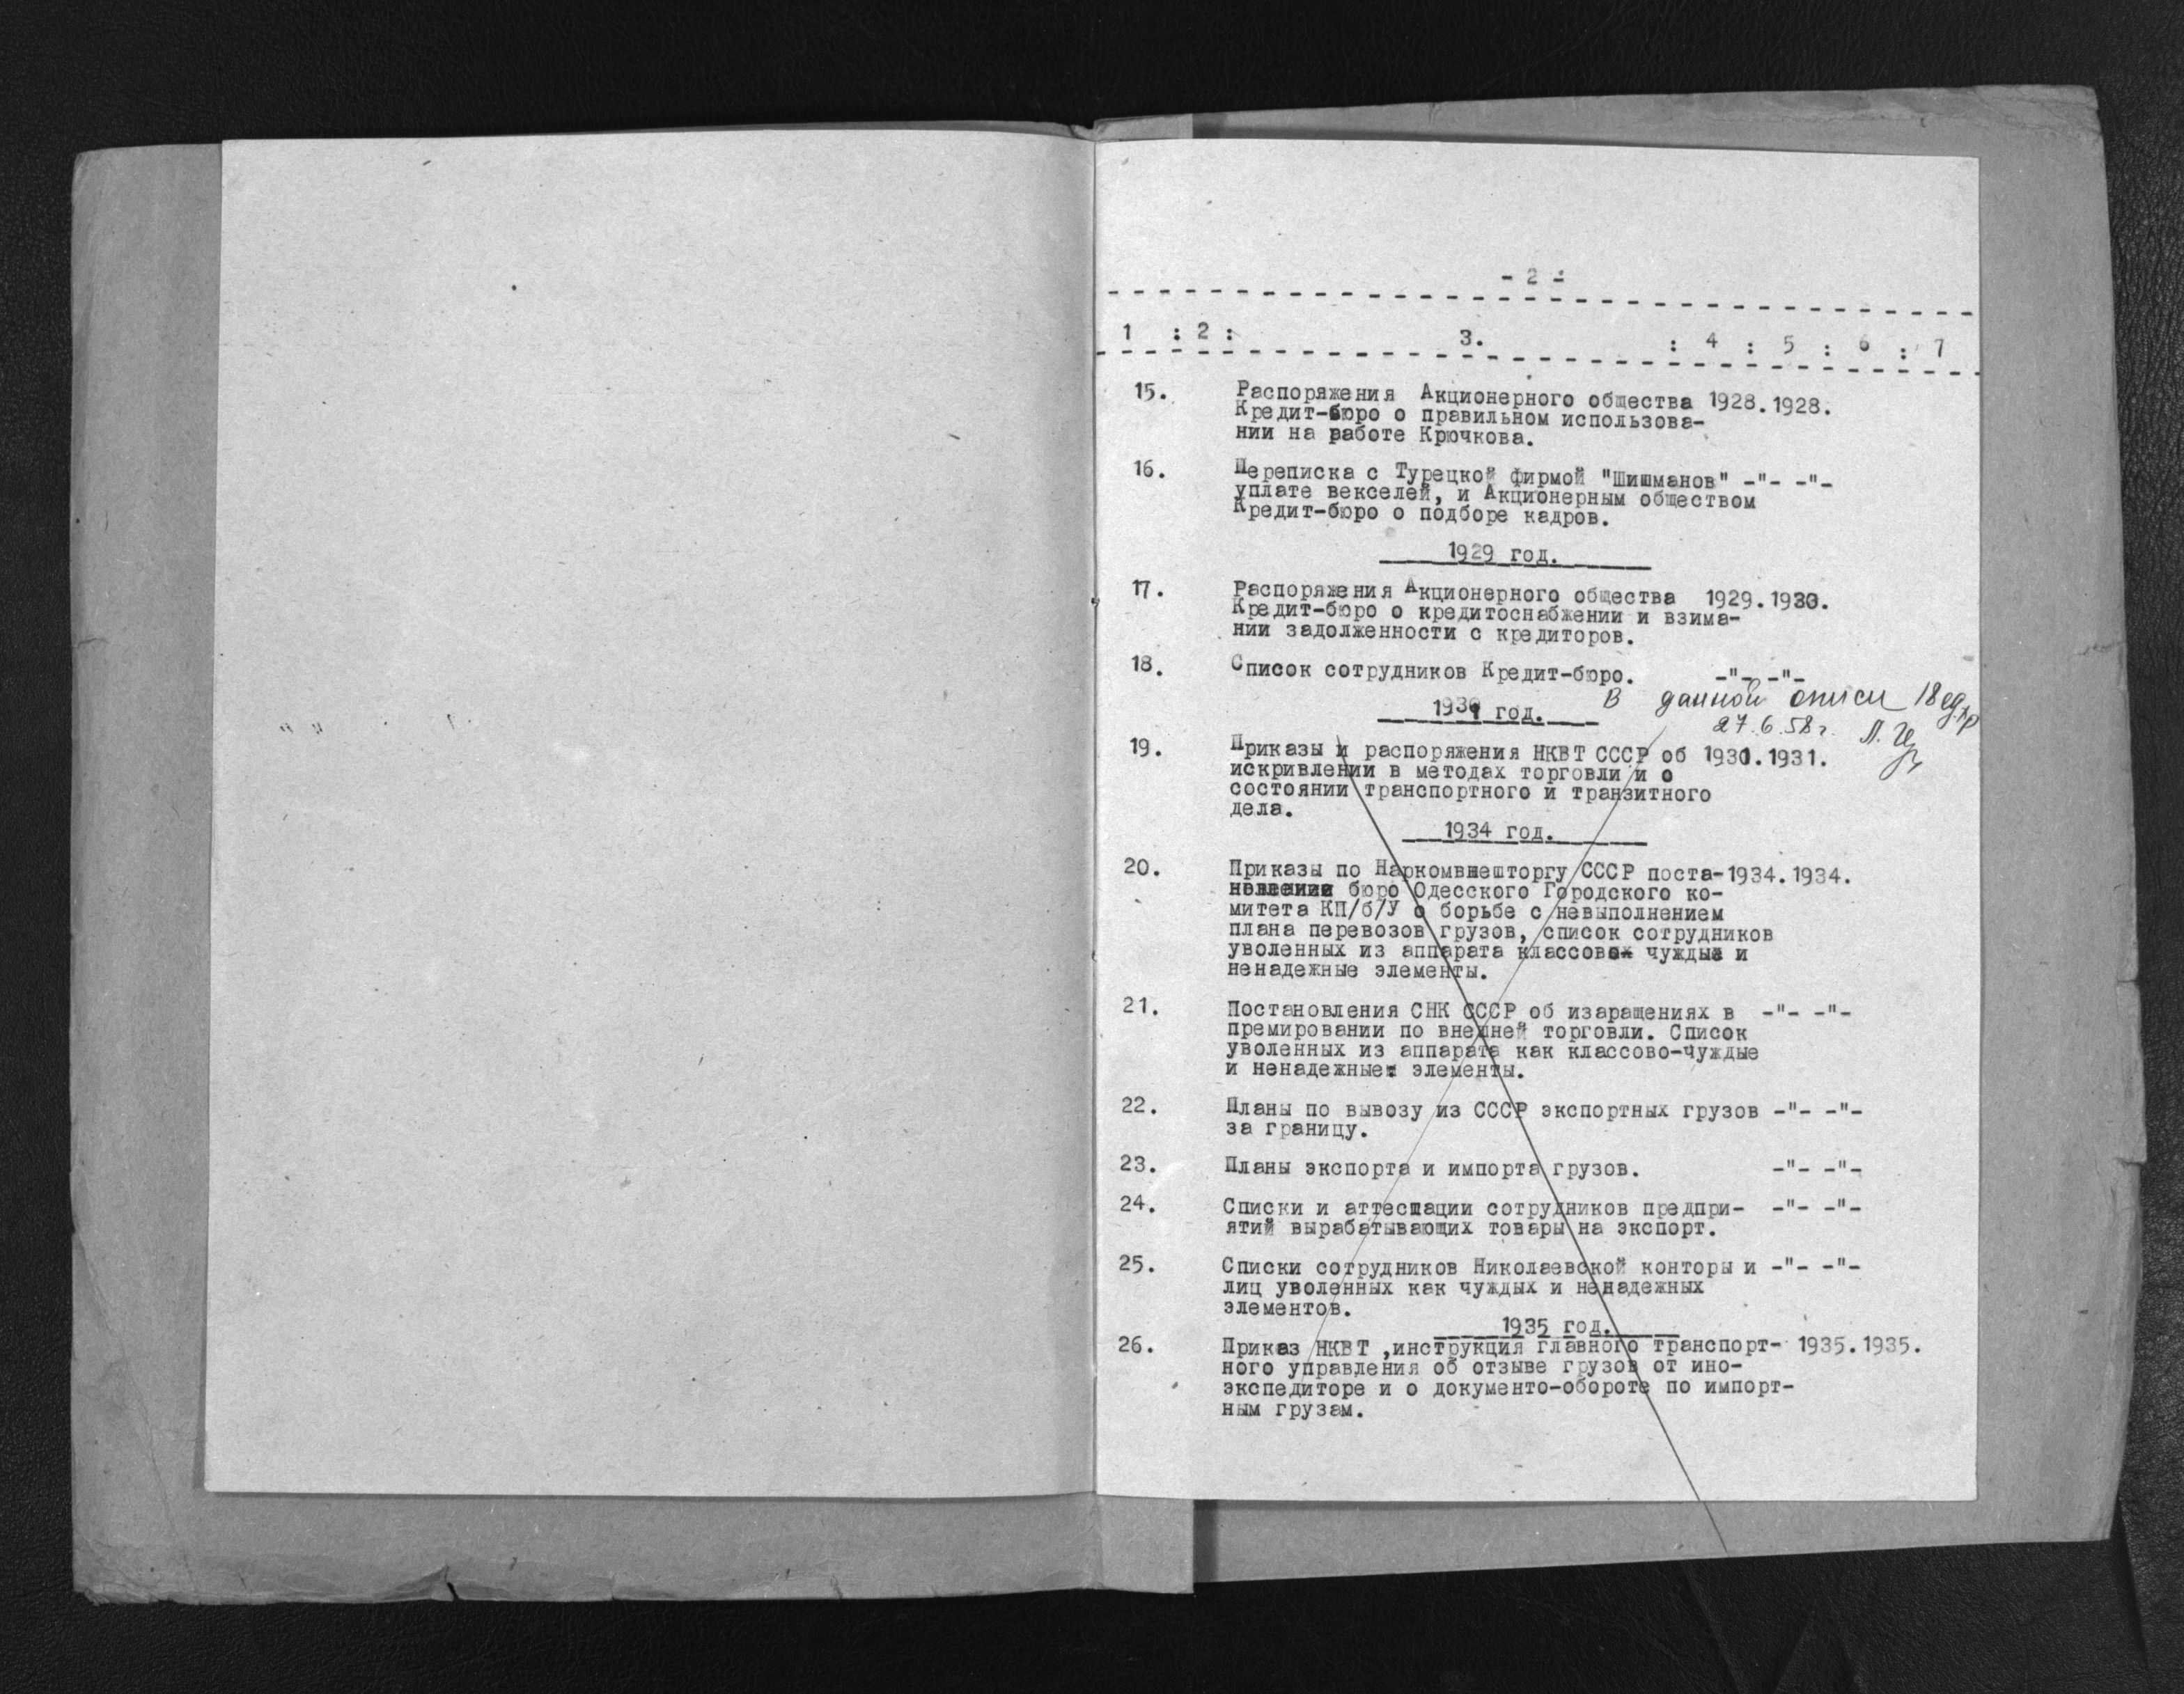 - 2 -
1 : 2 : 3. : 4 : 5 : 6 : 7
15. Распоряжения Акционерного общества 1928.1928.
Кредит-бюро о правильном использова-
нии на работе Крючкова.
16. Переписка с Турецкой фирмой "Шишманов" -"- -"-
уплате векселей, и Акционерным обществом
Кредит-бюро о подборе кадров.
1929 год.
17. Распоряжения Акционерного общества 1929.1930.
Кредит-бюро о кредитоснабжении и взима-
нии задолженности с кредиторов.
18. Список сотрудников Кредит-бюро. -"- -"-
В данной описи 18 ед.хр
1930 год.
27.6.58г.
19. Приказы и распоряжения НКВТ СССР об 1930.1931.
искривлении в методах торговли и о
состоянии транспортного и транзитного
дела.
1934 год.
20. Приказы по Наркомвнешторгу СССР поста-1934.1934.
новления бюро Одесского Городского ко-
митета КП/б/У о борьбе с невыполнением
плана перевозов грузов, список сотрудников
уволенных из аппарата классово чуждые и
ненадежные элементы.
21. Постановления СНК СССР об изаращениях в -"- -"-
премировании по внешней торговли. Список
уволенных из аппарата как классово-чуждые
и ненадежные элементы.
22. Планы по вывозу из СССР экспортных грузов -"- -"-
за границу.
23. Планы экспорта и импорта грузов. -"- -"-
24. Списки и аттесшации сотрудников предпри- -"- -"-
ятий вырабатывающих товары на экспорт.
25. Списки сотрудников Николаевской конторы и -"- -"-
лиц уволенных как чуждых и ненадежных
элементов.
1935 год.
26. Приказ НКВТ ,инструкция главного транспорт- 1935.1935.
ного управления об отзыве грузов от ино-
экспедиторе и о документо-обороте по импорт-
ным грузам.